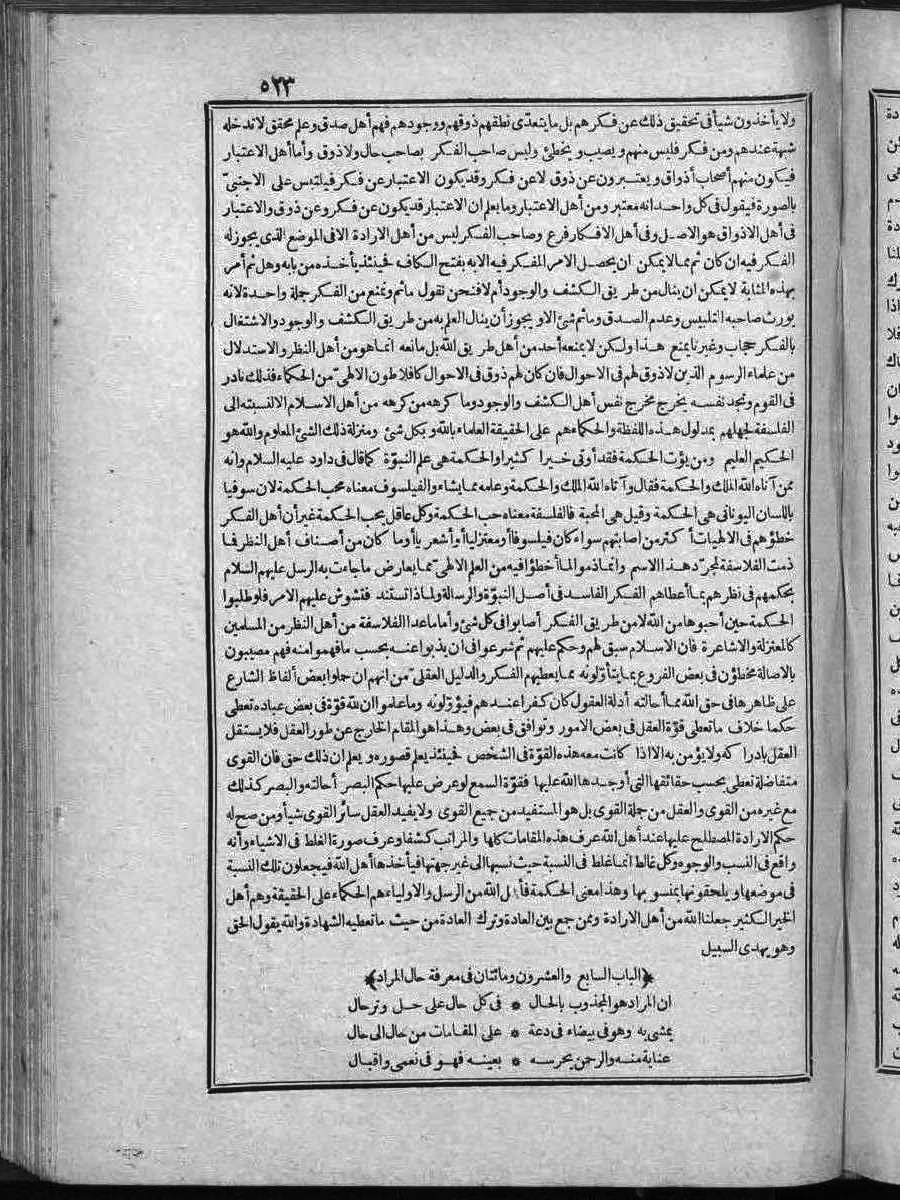 ٥٢٣
ولا يأخذون شيأ فى تحقيق ذلك عن فكرهم بل ما يتعدى نطقهم ذوقهم ووجودهم فهم أهل صدق وعلم محقق لا تدخله
شبهة عندهم ومن فكر فليس منهم ويصيب ويخطئ وليس صاحب الفكر بصاحب حال ولا ذوق وأما أهل الاعتبار
فيكون منهم أصحاب أذواق ويعتبرون عن ذوق لا عن فكر وقد يكون الاعتبار عن فكر فيلتبس على الاجنبىّ
بالصورة فيقول فى كل واحد انه معتبر ومن أهل الاعتبار وما يعلم ان الاعتبار قد يكون عن فكر وعن ذوق والاعتبار
فى أهل الاذواق هو الاصل وفى أهل الافكار فرع وصاحب الفكر ليس من أهل الارادة الا فى الموضع الذى يجوز له
الفكر فيه ان كان ثم مما لا يمكن ان يحصل الامر المفكر فيه الا به بفتح الكاف فحينئذ يأخذه من بابه وهل ثم أمر
بهذه المثابة لا يمكن ان ينال من طريق الكشف والوجود أم لا فنحن نقول ما ثم ونمنع من الفكر جملة واحدة لانه
يورث صاحبه التلبيس وعدم الصدق وما ثم شئ الا ويجوز أن ينال العلم به من طريق الكشف والوجود والاشتغال
بالفكر حجاب وغيرنا يمنع هذا ولكن لا يمنعه أحد من أهل طريق الله بل مانعه انما هو من أهل النظر والاستدلال
من علماء الرسوم الذين لا ذوق لهم فى الاحوال فان كان لهم ذوق فى الاحوال كافلاطون الالهىّ من الحكماء فذلك نادر
فى القوم وتجد نفسه يخرج مخرج نفس أهل الكشف والوجود وما كرهه من كرهه من أهل الاسلام الا لنسبته الى
الفلسفة لجهلهم بمدلول هذه اللفظة والحكماء هم على الحقيقة العلماء بالله وبكل شئ ومنزلة ذلك الشئ المعلوم والله هو
الحكيم العليم ومن يؤت الحكمة فقد أوتى خيرا كثيرا والحكمة هى علم النبوّة كما قال فى داود عليه السلام وانه
ممن آتاه الله الملك والحكمة فقال وآتاه الله الملك والحكمة وعلمه مما يشاء والفيلسوف معناه محب الحكمة لان سوفيا
باللسان اليونانى هى الحكمة وقيل هى المحبة فالفلسفة معناه حب الحكمة وكل عاقل يحب الحكمة غير أن أهل الفكر
خطؤهم فى الالهيات أكثر من اصابتهم سواء كان فيلسوفا أو معتزليا أو أشعريا أو ما كان من أصناف أهل النظر فما
ذمت الفلاسفة لمجرّد هذا الاسم وانما ذموا لما أخطؤا فيه من العلم الالهىّ مما يعارض ما جاءت به الرسل عليهم السلام
بحكمهم فى نظرهم بما أعطاهم الفكر الفاسد فى أصل النبوّة والرسالة ولما ذا تستند فتشوش عليهم الامر فلو طلبوا
الحكمة حين أحبوها من الله لا من طريق الفكر أصابوا فى كل شئ وأما ما عدا الفلاسفة من أهل النظر من المسلمين
كالمعتزلة والاشاعرة فان الاسلام سبق لهم وحكم عليهم ثم شرعوا فى ان يذبوا عنه بحسب ما فهموا منه فهم مصيبون
بالاصالة مخطؤن فى بعض الفروع بما يتأوّلونه مما يعطيهم الفكر والدليل العقلىّ من انهم ان حملوا بعض ألفاظ الشارع
على ظاهرها فى حق الله مما أحالته أدلة العقول كان كفرا عندهم فيؤوّلونه وما علموا ان لله قوّة فى بعض عباده تعطى
حكما خلاف ما تعطى قوّة العقل فى بعض الامور وتوافق فى بعض وهذا هو المقام الخارج عن طور العقل فلا يستقل
العقل بادراكه ولا يؤمن به الا اذا كانت معه هذه القوّة فى الشخص فحينئذ يعلم قصوره ويعلم ان ذلك حق فان القوى
متفاضلة تعطى بحسب حقائقها التى أوجدها الله عليها فقوّة السمع لو عرض عليها حكم البصر أحالته والبصر كذلك
مع غيره من القوى والعقل من جملة القوى بل هو المستفيد من جميع القوى ولا يفيد العقل سائر القوى شيأ ومن صح له
حكم الارادة المصطلح عليها عند أهل الله عرف هذه المقامات كلها والمراتب كشفا وعرف صورة الغلط فى الاشياء وأنه
واقع فى النسب والوجوه وكل غالط انما غلط فى النسبة حيث نسبها الى غير جهتها فيأخذها أهل الله فيجعلون تلك النسبة
فى موضعها ويلحقونها بمنسوبها وهذا معنى الحكمة فأهل الله من الرسل والاولياء هم الحكماء على الحقيقة وهم أهل
الخير الكثير جعلنا الله من أهل الارادة وممن جمع بين العادة وترك العادة من حيث ما تعطيه الشهادة والله يقول الحق
وهو يهدى السبيل
﴿الباب السابع والعشرون ومائتان فى معرفة حال المراد﴾
ان المراد هو المجذوب بالحال * فى كل حال على حل وترحال
يمشى به وهو فى بيضاء فى دعة * على المقامات من حال الى حال
عناية منه والرحمن يحرسه * بعينه فهو فى نعمى واقبال